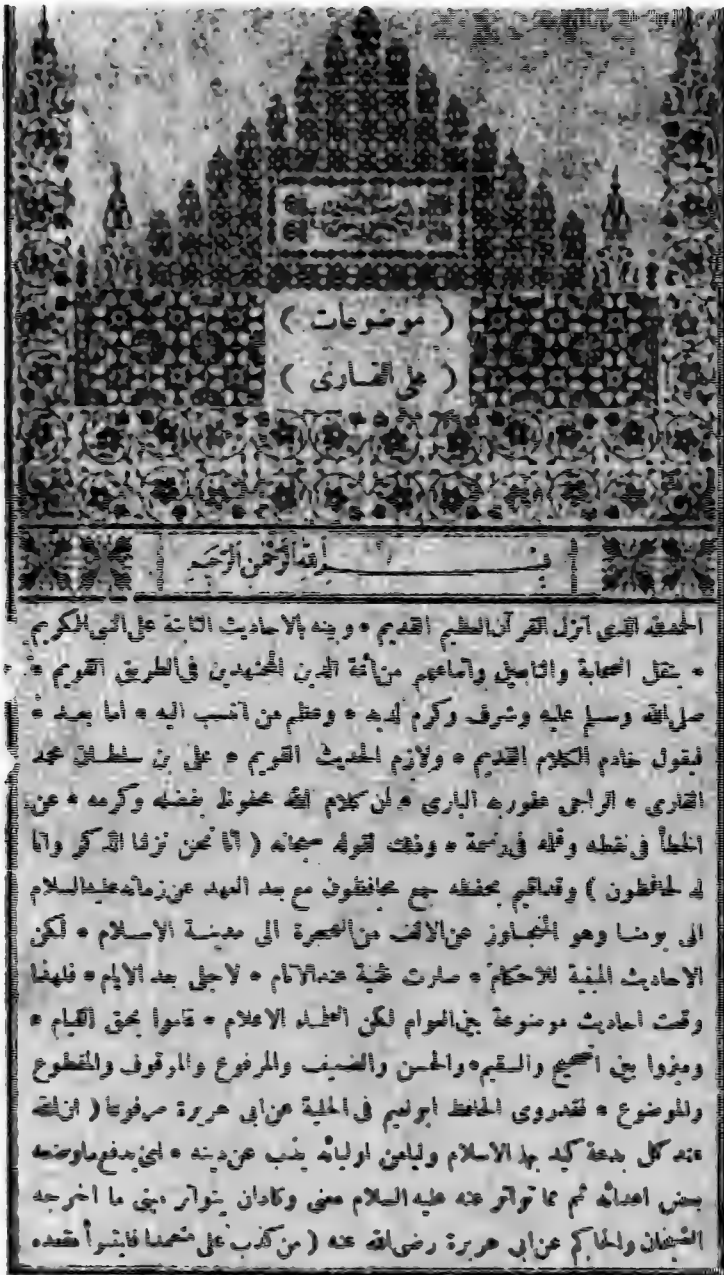 ( موضوعات )
( على القارى )
بسم الله الرحمن الرحيم
الحمدلله الذى انزل القرآن العظيم القديم * وبينه بالاحاديث الثابتة على النبى الكريم
* بنقل الصحابة والتابعين واتباعهم من ائمة الدين المجتهدين فى الطريق القويم *
صلى الله وسلم عليه وشرف وكرم لديه * وعظم من انتسب اليه * اما بعد *
فيقول خادم الكلام القديم * ولازم الحديث القويم * على بن سلطان محمد
القارى * الراجى عفو ربه البارى * ان كلام الله محفوظ بفضله وكرمه * عن
الخطأ فى نقطه وقلمه * وفقت لقوله سبحانه ( انا نحن نزلنا الذكر وانا
له لحافظون ) وقد اقيم بحفظه جمع محافظون مع بعد العهد عن زمانه عليه السلام
الى يومنا وهو المتجاوز عن الالف من الهجرة الى مدينة الاسلام * لكن
الاحاديث المبنية للاحكام * صارت عند الانام * لاجل بعد الايام * فلهذا
وقعت احاديث موضوعة بين العوام لكن العلماء الاعلام * قاموا بحق القيام *
وميزوا بين الصحيح والسقيم * والحسن والضعيف والمرفوع والموقوف والمقطوع
والموضوع * فقدروى الحافظ ابونعيم فى الحلية عن ابى هريرة مرفوعا ( ان لله
عند كل بدعة كيد بها الاسلام وليا من اوليائه يذب عن دينه * اى يدفع ماوضعه
بعض اعدائه ثم مما تواتر عنه عليه السلام معنى وكادان يتواتر مبنى ما اخرجه
الشيخان والحاكم عن ابى هريرة رضى الله عنه ( من كذب على متعمدا فليتبوأ مقعده